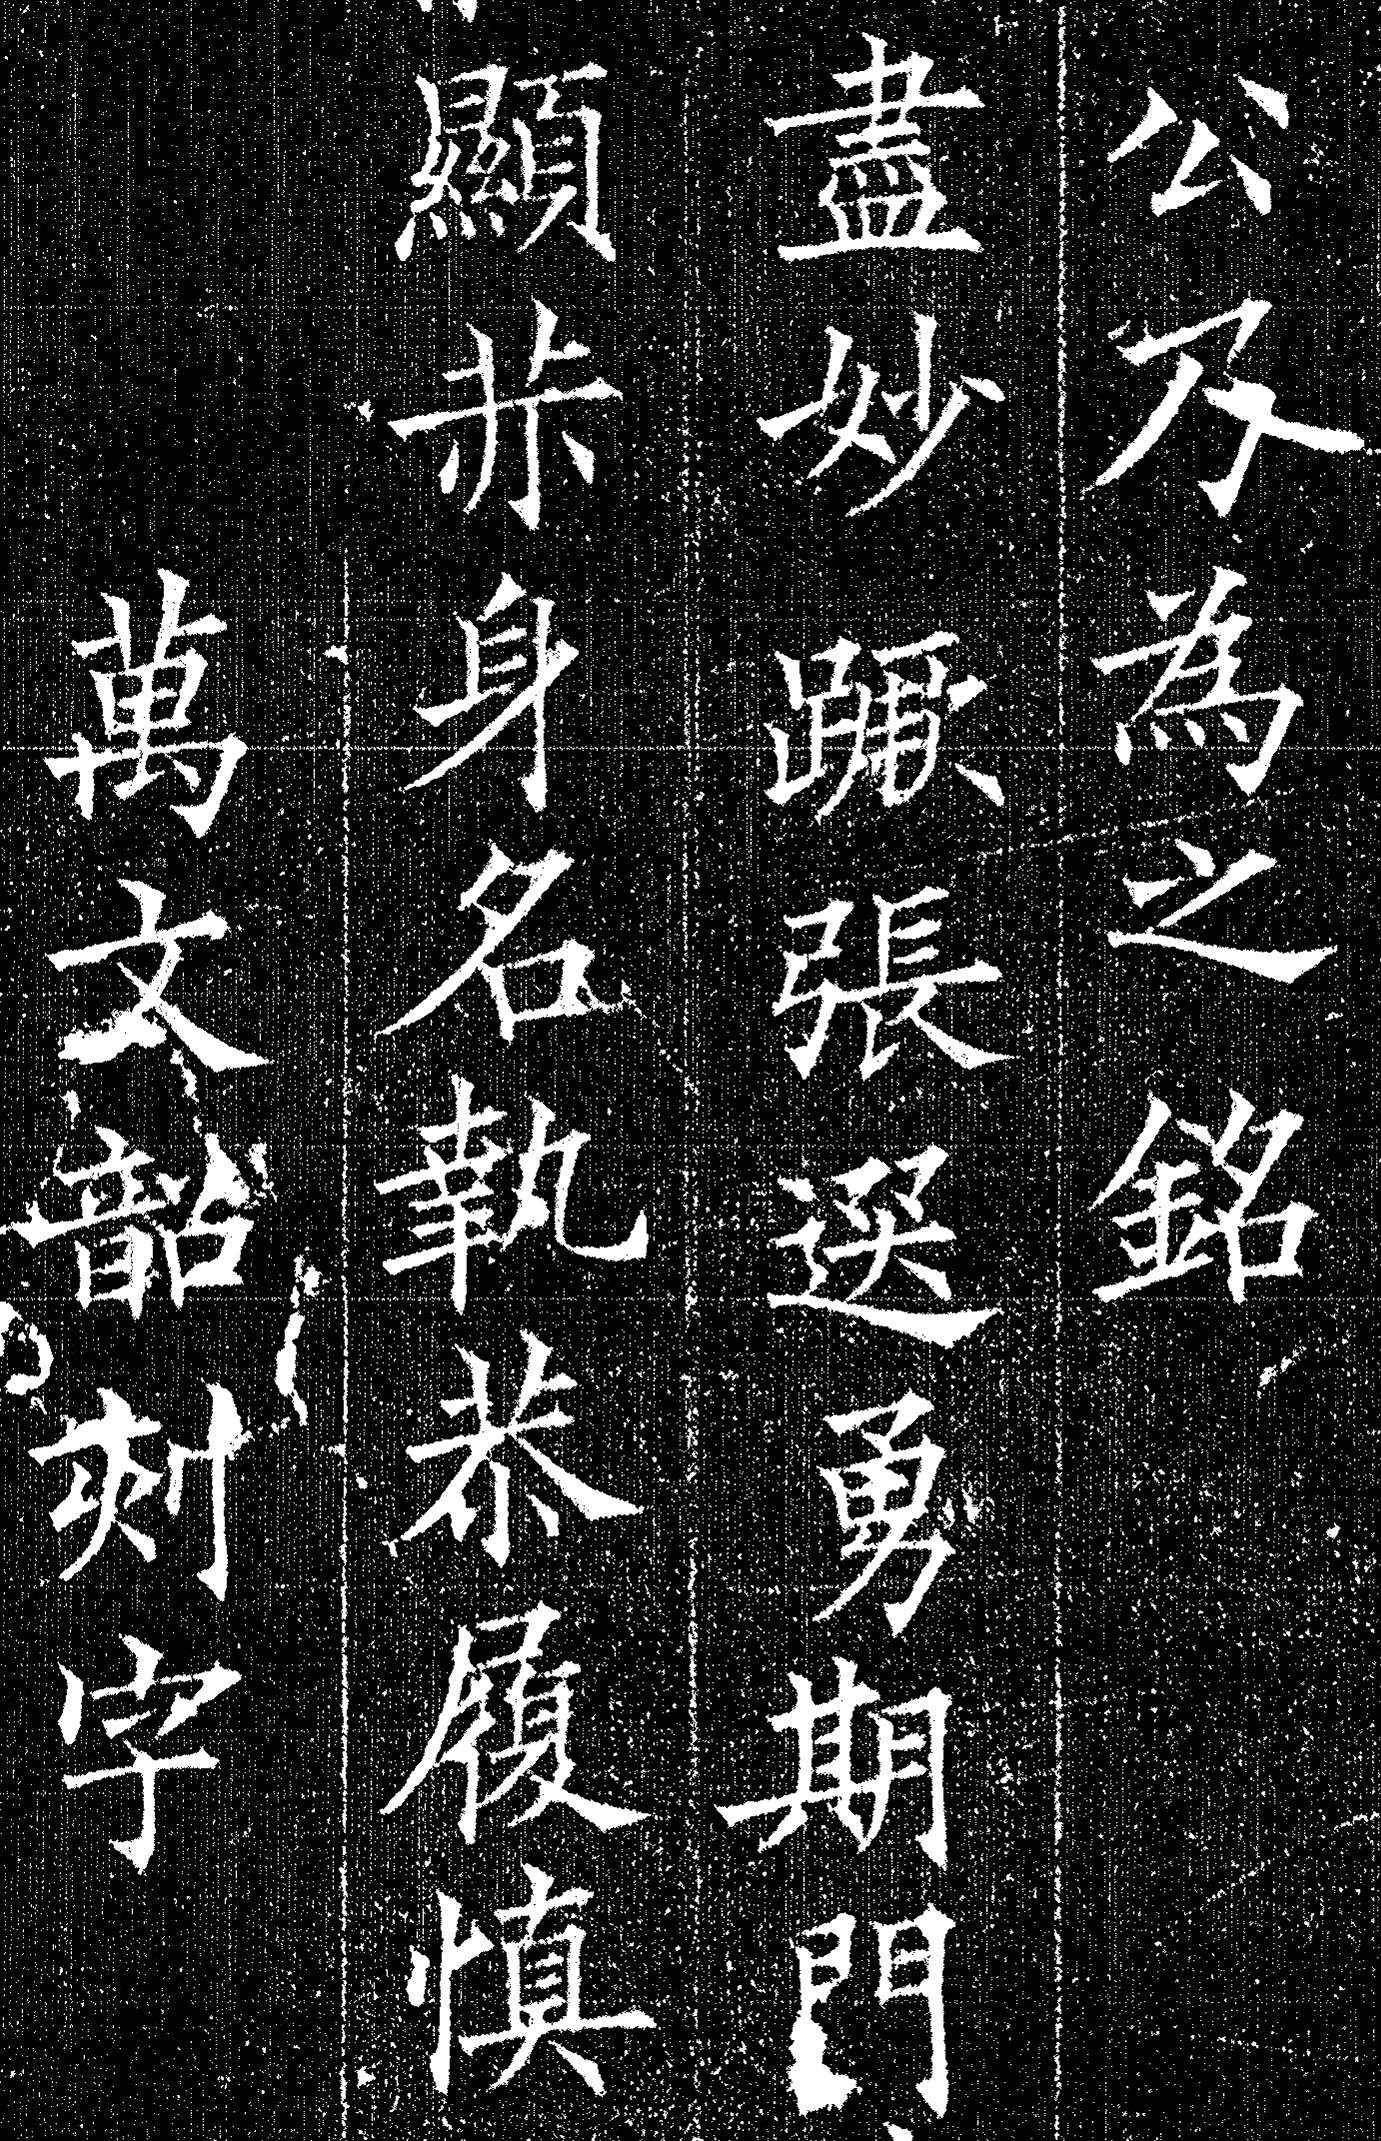 公乃為之銘
盡妙蹶張選勇期門
顯身名執恭履慎
萬文韶刻字